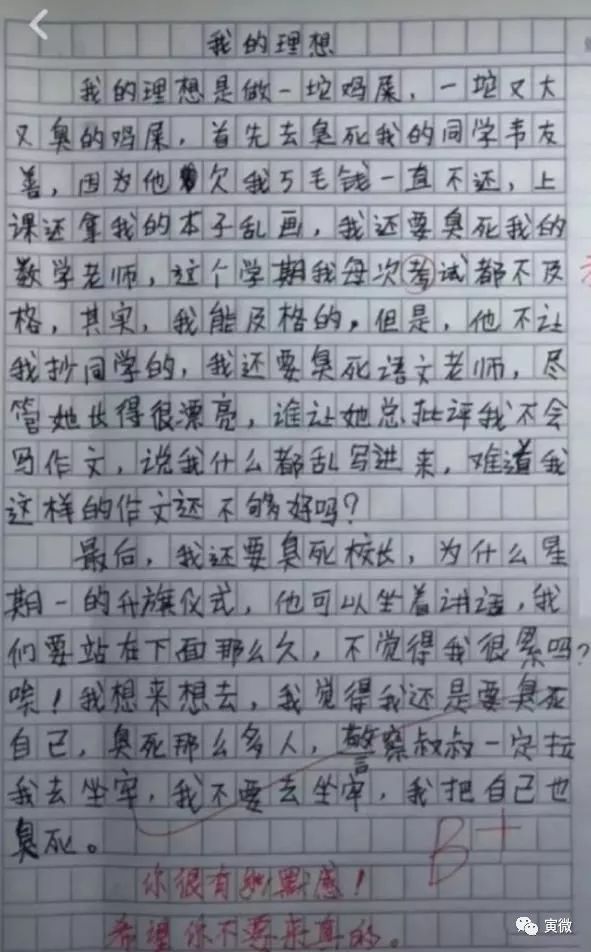 我的理想
我的理想是做一坨鸡屎，一坨又大
又臭的鸡屎，首先去臭死我的同学韦友
善，因为他欠我5毛钱一直不还，上
课还拿我的本子乱画，我还要臭死我的
数学老师，这个学期我每次考试都不及
格，其实，我能及格的，但是，他不让
我抄同学的，我还要臭死语文老师，尽
管她长得很漂亮，谁让她总批评我不会
写作文，说我什么都乱写进来，难道我
这样的作文还不够好吗？
最后，我还要臭死校长，为什么星
期一的升旗仪式，他可以坐着讲话，我
们要站在下面那么久，不觉得我很累吗？
唉！我想来想去，我觉得我还是要臭死
自己，臭死那么多人，警察叔叔一定拉
我去坐牢，我不要去坐牢，我把自己也
臭死。
B+
你很有幽默感！
希望你不要来真的。
寅微